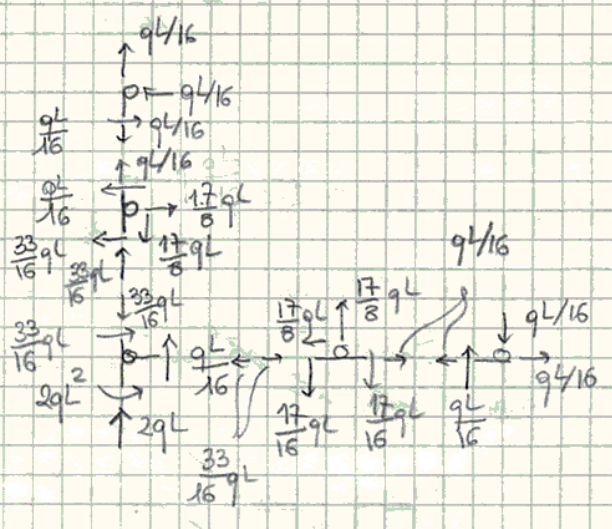 qL/16
qL/16
qL/16
qL/16
qL/16
qL/16
17/8 qL
33/16 qL
17/8 qL
33/16 qL
qL/16
33/16 qL
17/8 qL
17/8 qL
33/16 qL
qL/16
qL/16
qL/16
2qL²
2qL
17/16 qL
17/16 qL
qL/16
33/16 qL